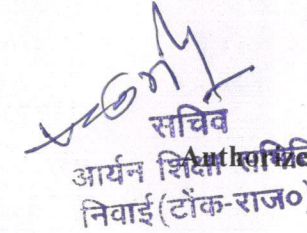 सचिव
आर्यन शिक्षा समिति
Authorize
निवाई (टोंक-राज०)